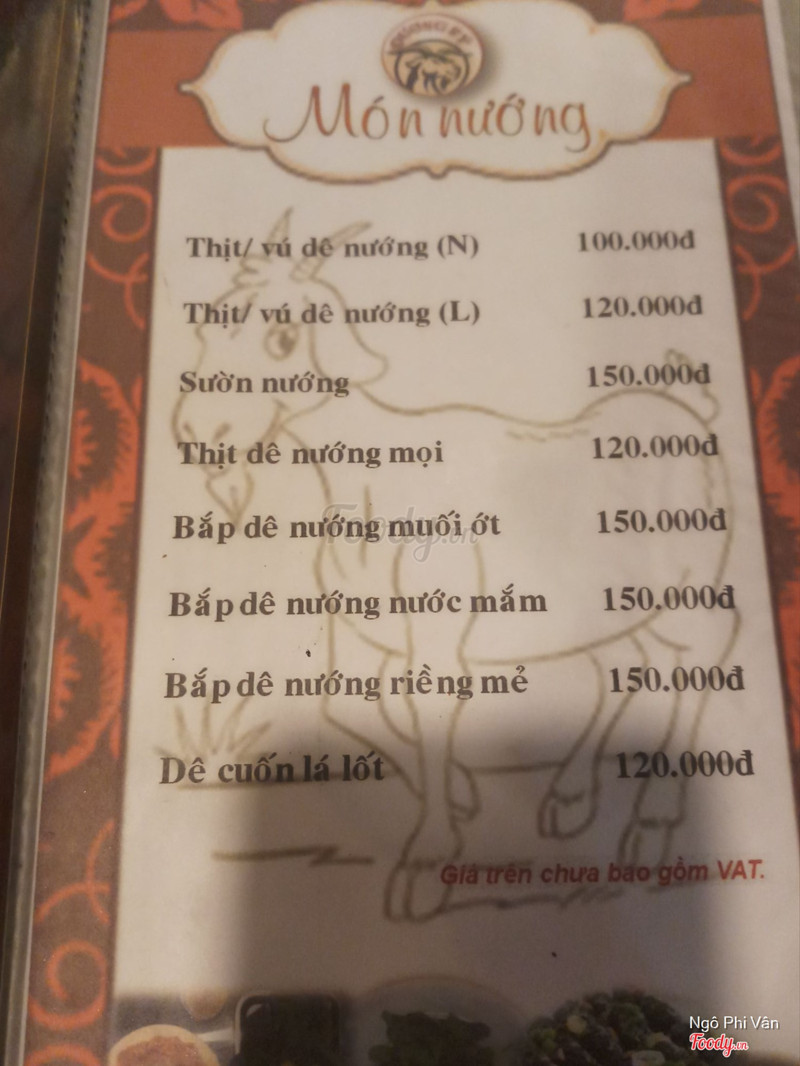 Món nướng
Thịt/ vú dê nướng (N) 100.000đ
Thịt/ vú dê nướng (L) 120.000đ
Sườn nướng 150.000đ
Thịt dê nướng mọi 120.000đ
Bắp dê nướng muối ớt 150.000đ
Foody.vn
Bắp dê nướng nước mắm 150.000đ
Bắp dê nướng riềng mẻ 150.000đ
Dê cuốn lá lốt 120.000đ
Giá trên chưa bao gồm VAT.
Ngô Phi Vân
Foody.vn